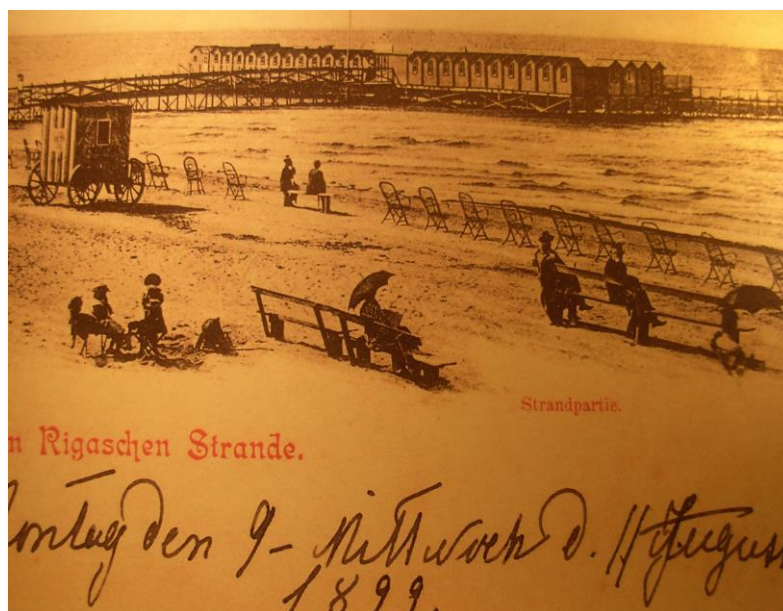 Strandpartie.
n Rigaschen Strande.
ontag den 9 - Mittwoch d. 11 August
1899.